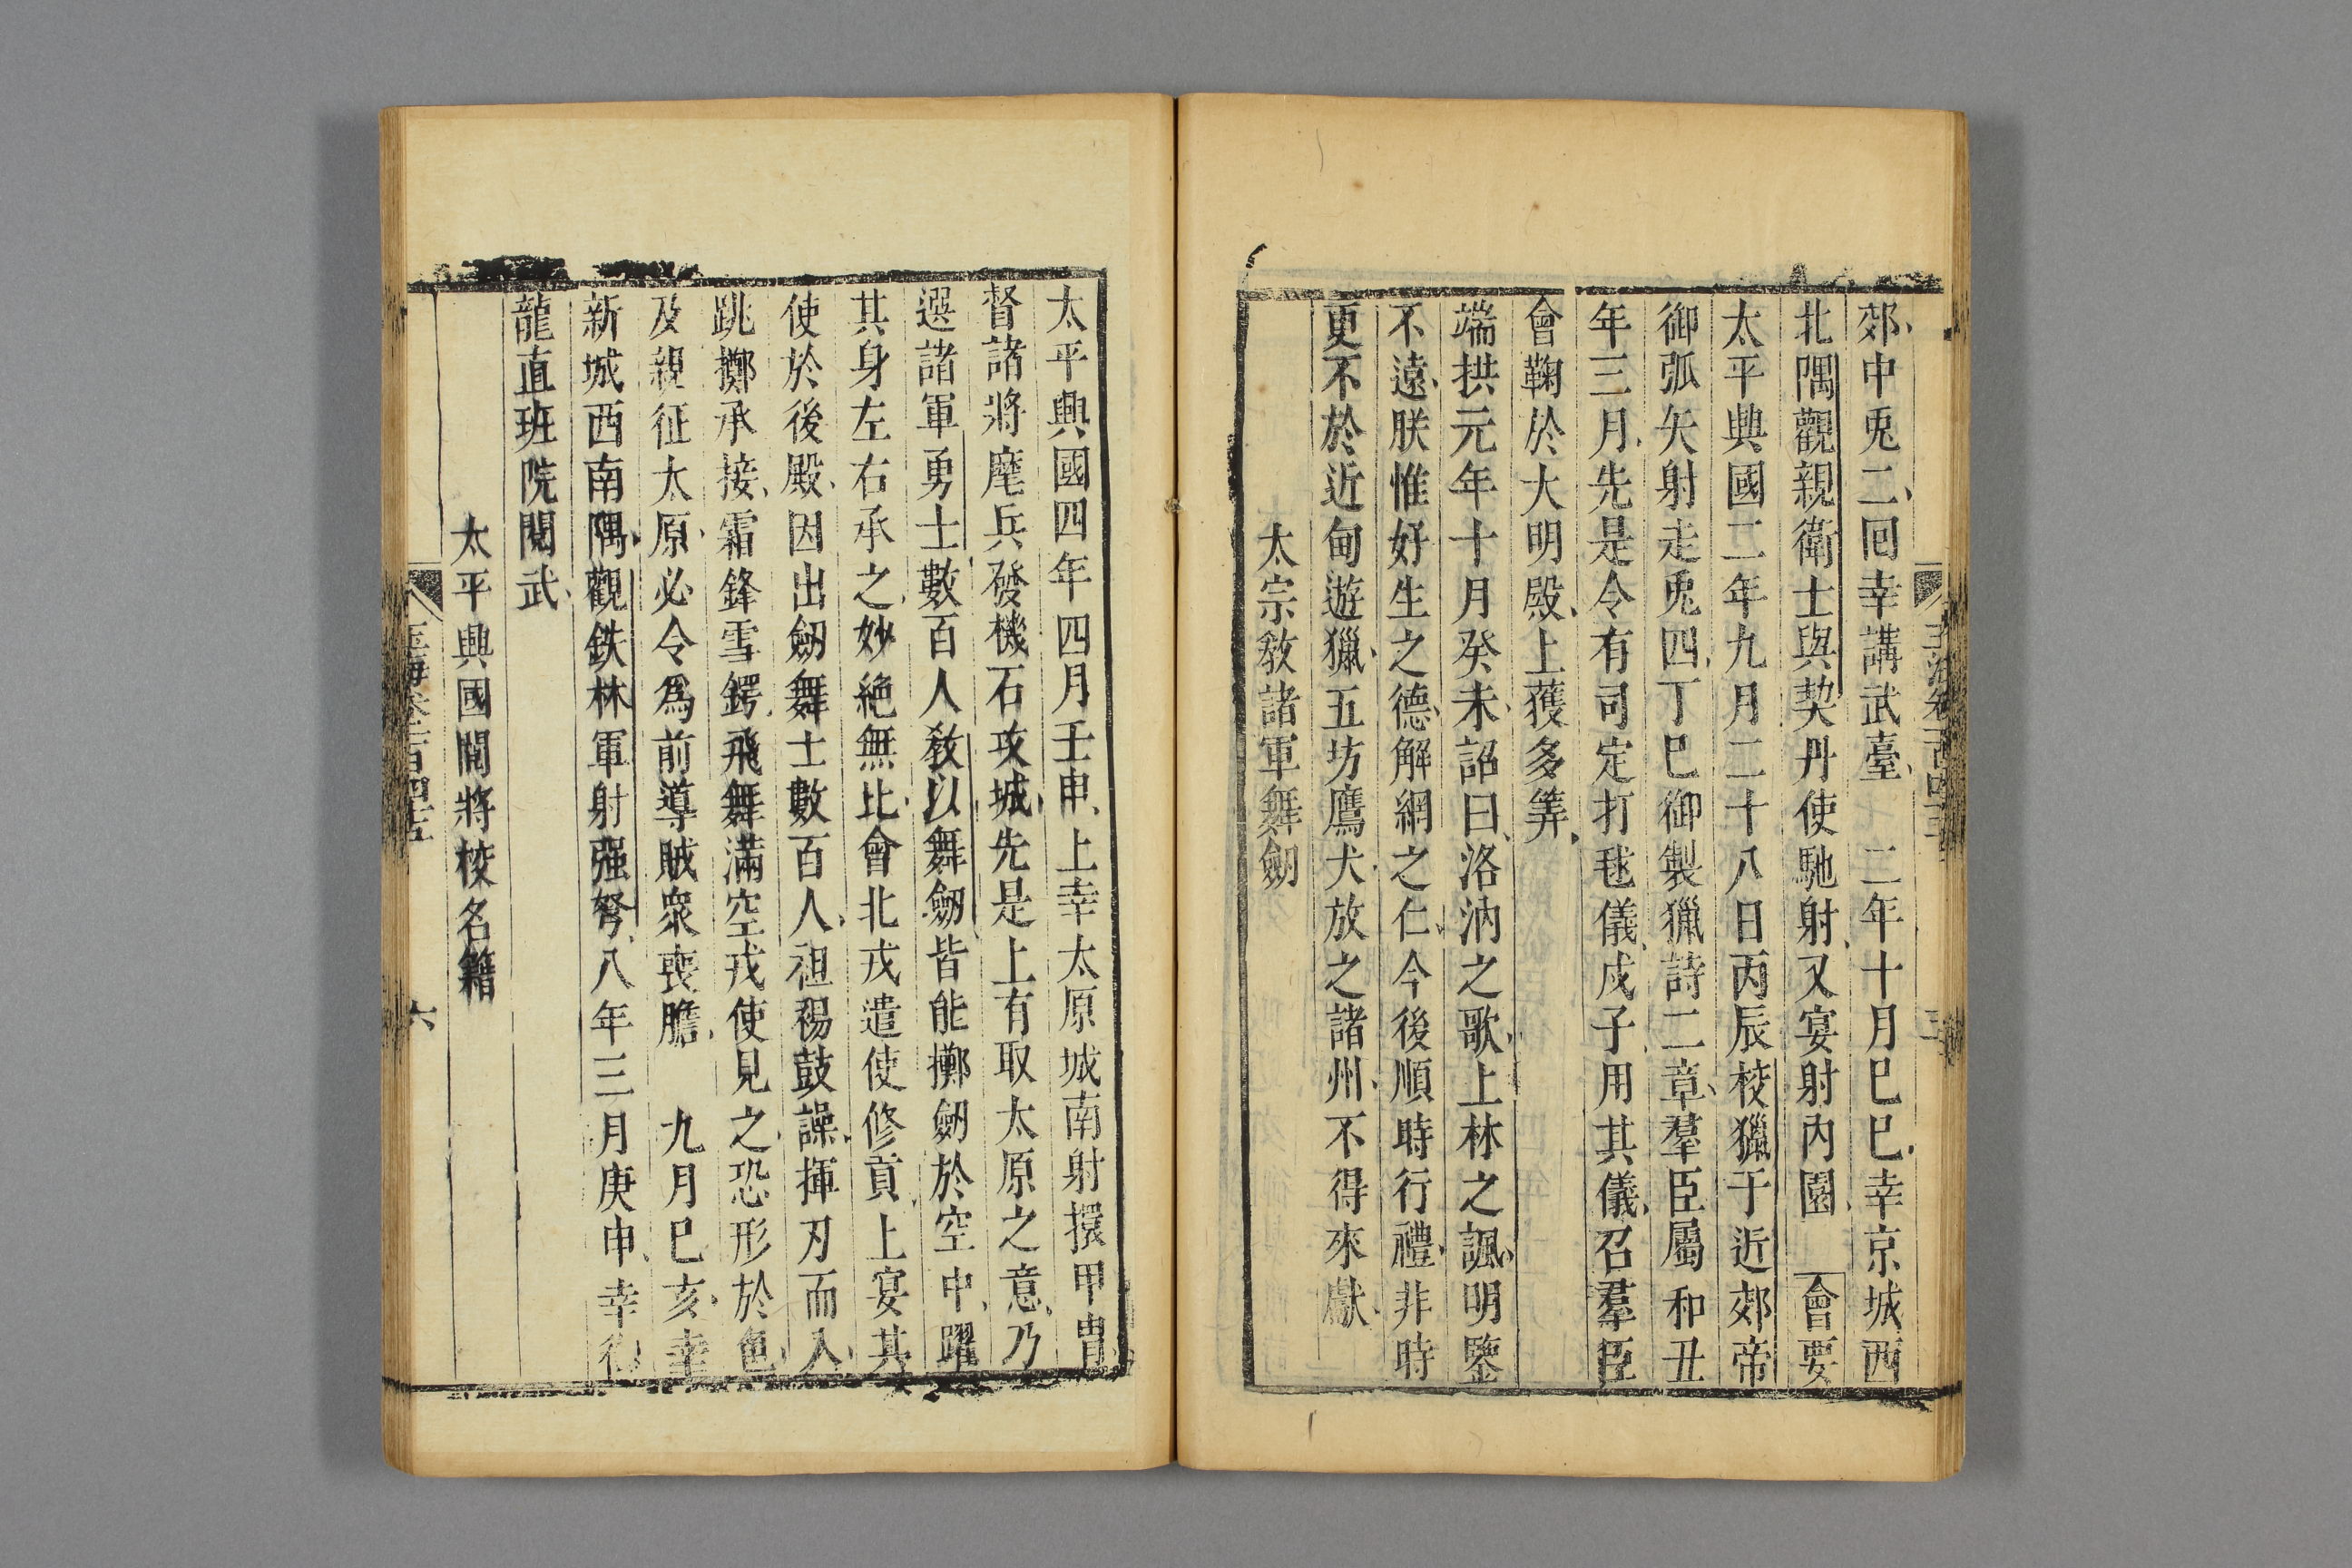 郊中兎二回幸講武臺　二年十月巳巳幸京城西
北隅觀親衛士與契丹使馳射又宴射內園　會要
太平興國二年九月二十八日丙辰校獵于近郊帝
御弧矢射走兎四丁巳御製獵詩二章羣臣屬和丑
年三月先是令有司定打毬儀戍子用其儀召羣臣
會鞠於大明殿上獲多筭
端拱元年十月癸未詔曰洛汭之歌上林之諷明鑒
不遠朕惟好生之德解網之仁今後順時行禮非時
更不於近甸遊獵五坊鷹犬放之諸州不得來獻
太宗敎諸軍舞劒
太平興國四年四月壬申上幸太原城南射擐甲胄
督諸將麾兵發機石攻城先是上有取太原之意乃
選諸軍勇士數百人敎以舞劒皆能擲劒於空中躍
其身左右承之妙絶無比會北戎遣使修貢上宴其
使於後殿因出劒舞士數百人袒裼鼓譟揮刃而入
跳擲承接霜鋒雪鍔飛舞滿空戎使見之恐形於色
及親征太原必令爲前導賊衆喪膽　九月巳亥幸
新城西南隅觀鉄林軍射强弩八年三月庚申幸御
龍直班院閱武
太平興國閱將校名籍
玉海卷一百四十五
六